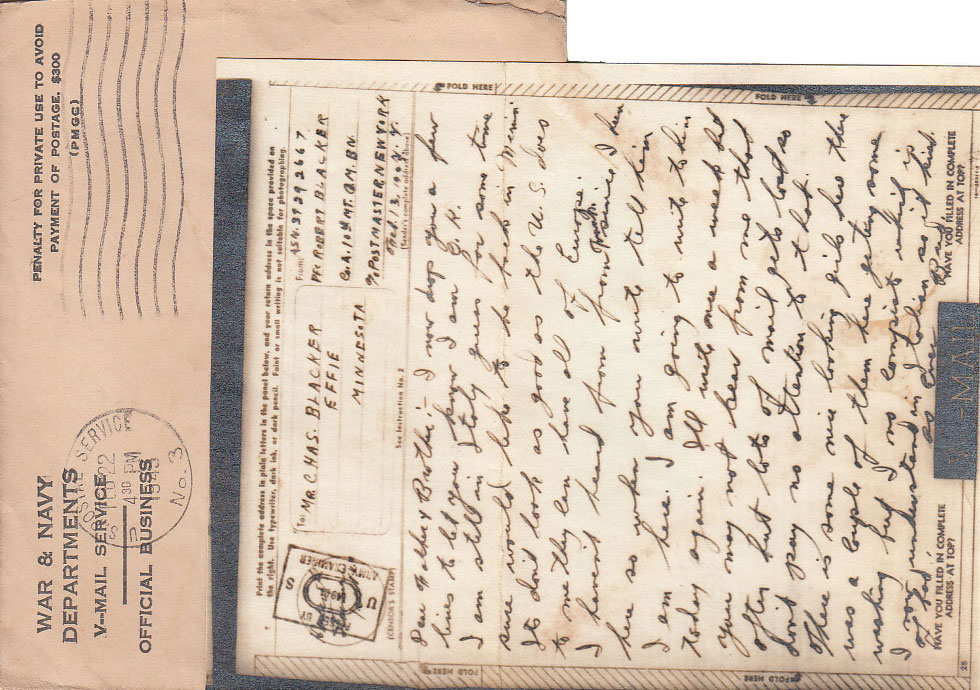 PENALTY FOR PRIVATE USE TO AVOID
PAYMENT OF POSTAGE, $300
(PMGC)
WAR & NAVY
DEPARTMENTS
V-MAIL SERVICE
OFFICIAL BUSINESS
POSTAL SERVICE
22
4 30 PM
1943
No. 3
Print the complete address in plain letters in the panel below, and your return address in the space provided on
the right. Use typewriter, dark ink, or dark pencil. Faint or small writing is not suitable for photographing.
To: MR. CHAS. BLACKER
EFFIE
MINNESOTA
See Instruction No. 2
From: ASN. 37392667
Pfc ROBERT BLACKER
Co. A. 10th MT. Q.M. BN.
% POSTMASTER, NEW YORK
N. Y.
(Sender's complete address above)
(CENSOR'S STAMP)
U S
ARMY EXAMINER
Dear Father & Brother:- I now drop you a few
lines to let you know I am O.K.
I am still in Italy guess for some time
since would like to be back in Minn
It don't look as good as the U.S. does
to me they can have all of Europe.
I haven't heard from from Francis I been
here so when you write tell him
I am here. I am going to write to him
today again. I'll write once a week but
you may not hear from me that
often but lots of mail gets lost so
don't pay no attention to that.
There is some nice looking girls here this
was a couple of them here getting some
washing but I no compist which is
I now understand in Italian as it kind
of bad. As Ever
HAVE YOU FILLED IN COMPLETE
ADDRESS AT TOP?
V-MAIL
HAVE YOU FILLED IN COMPLETE
ADDRESS AT TOP?
FOLD HERE
FOLD HERE
FOLD HERE
FOLD HERE